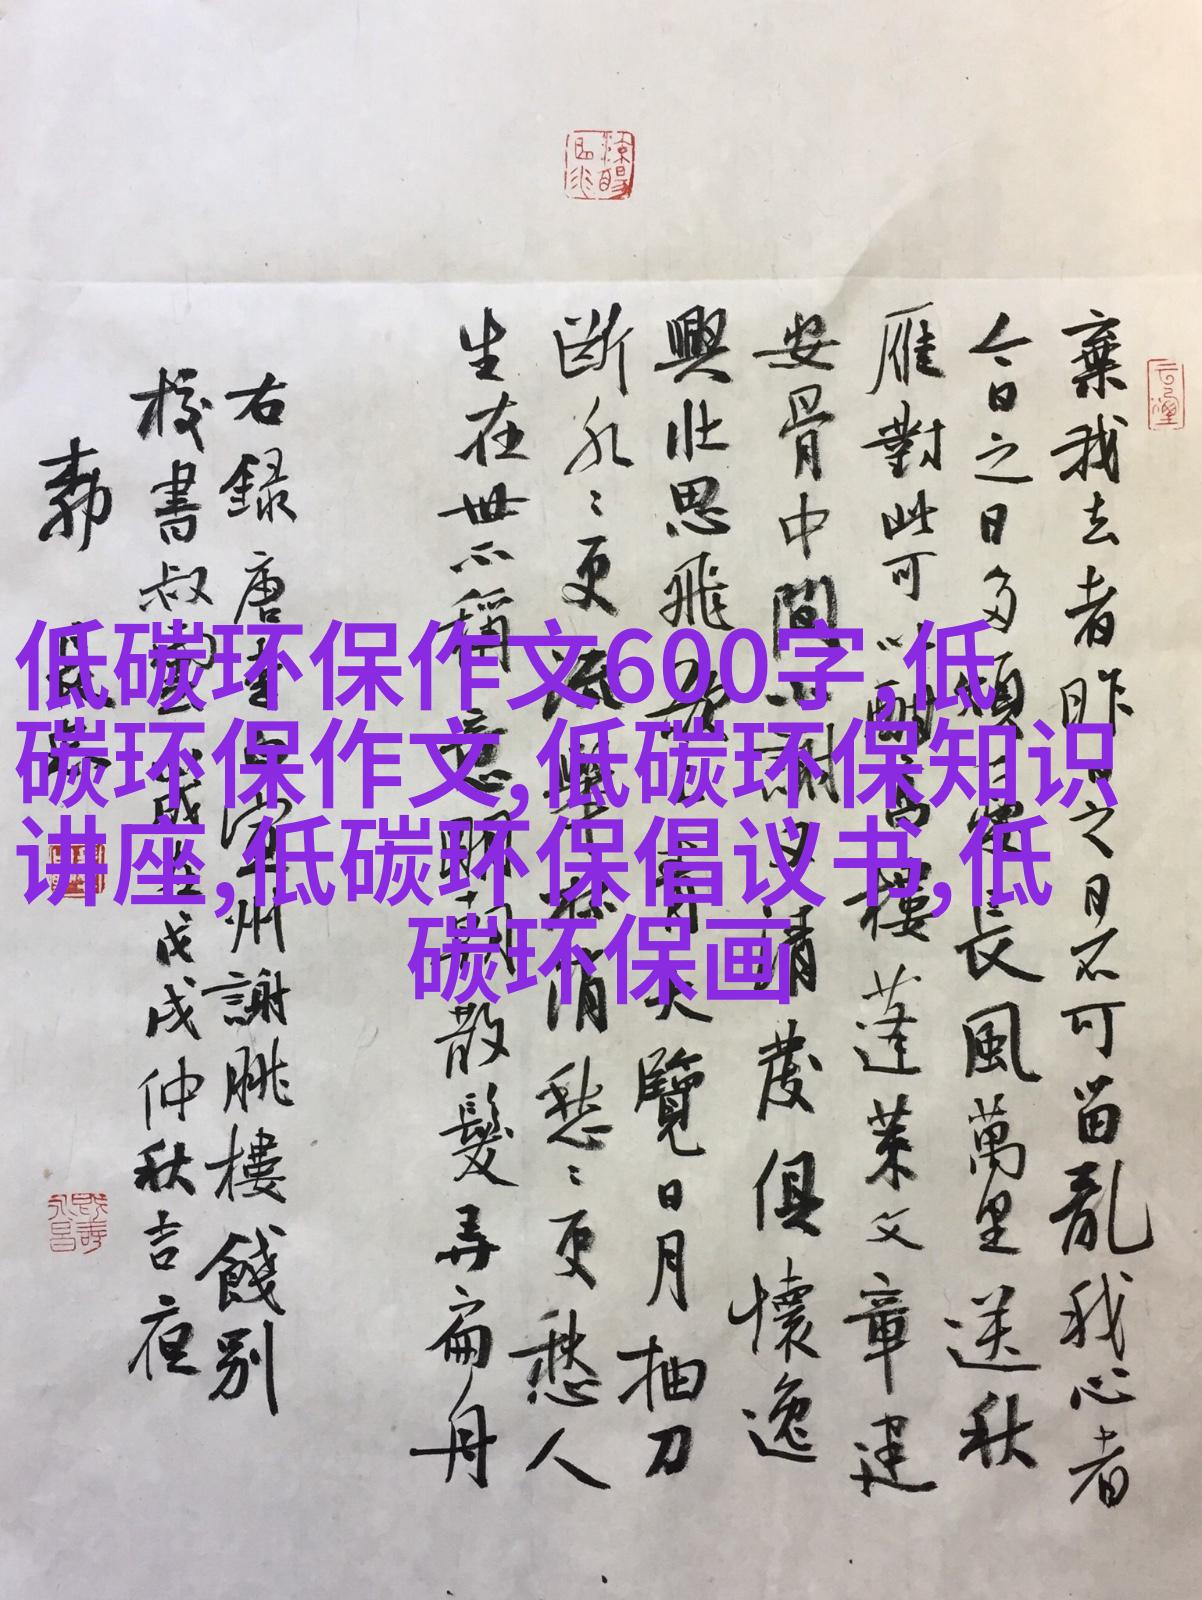 棄我去者昨日之日不可留亂我心者
今日之日多煩憂長風萬里送秋
雁對此可以酣高樓蓬萊文章建
安骨中間小謝又清發俱懷逸
興壯思飛欲上青天覽日月抽刀
斷水〻更流舉杯消愁〻更愁人
生在世不稱意明朝散髮弄扁舟
右録唐李白宣州謝朓樓餞別
校書叔雲歲在戊戌仲秋吉夜
低碳环保作文600字,低
碳环保作文,低碳环保知识
讲座,低碳环保倡议书,低
碳环保画